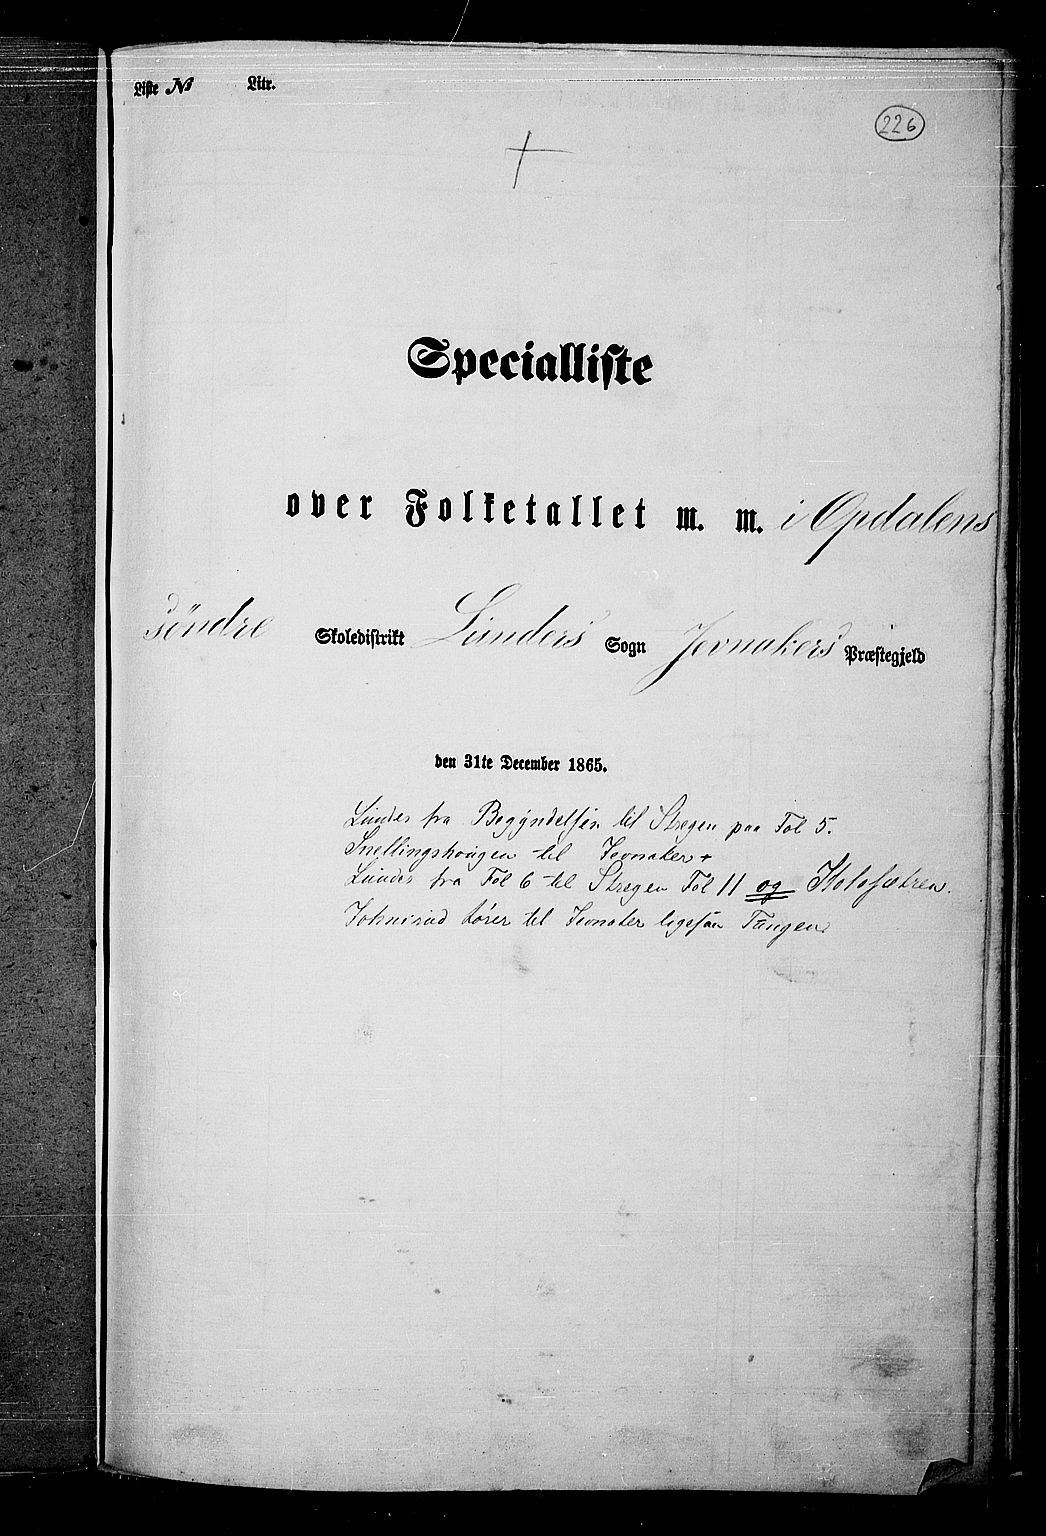 Liste No Litr.
226
Specialliste
over Folketallet m. m. i Opdalens
søndre Skoledistrikt Lunders Sogn Jevnakers Præstegjeld
den 31te December 1865.
Lunder fra Begyndelsen til Stregen paa Fol 5.
Snellingshougen til Jevnaker +
Lunder fra Fol 6 til Stregen Fol 11 og
Johnsrud hører til Jevnaker ligesaa Tangen